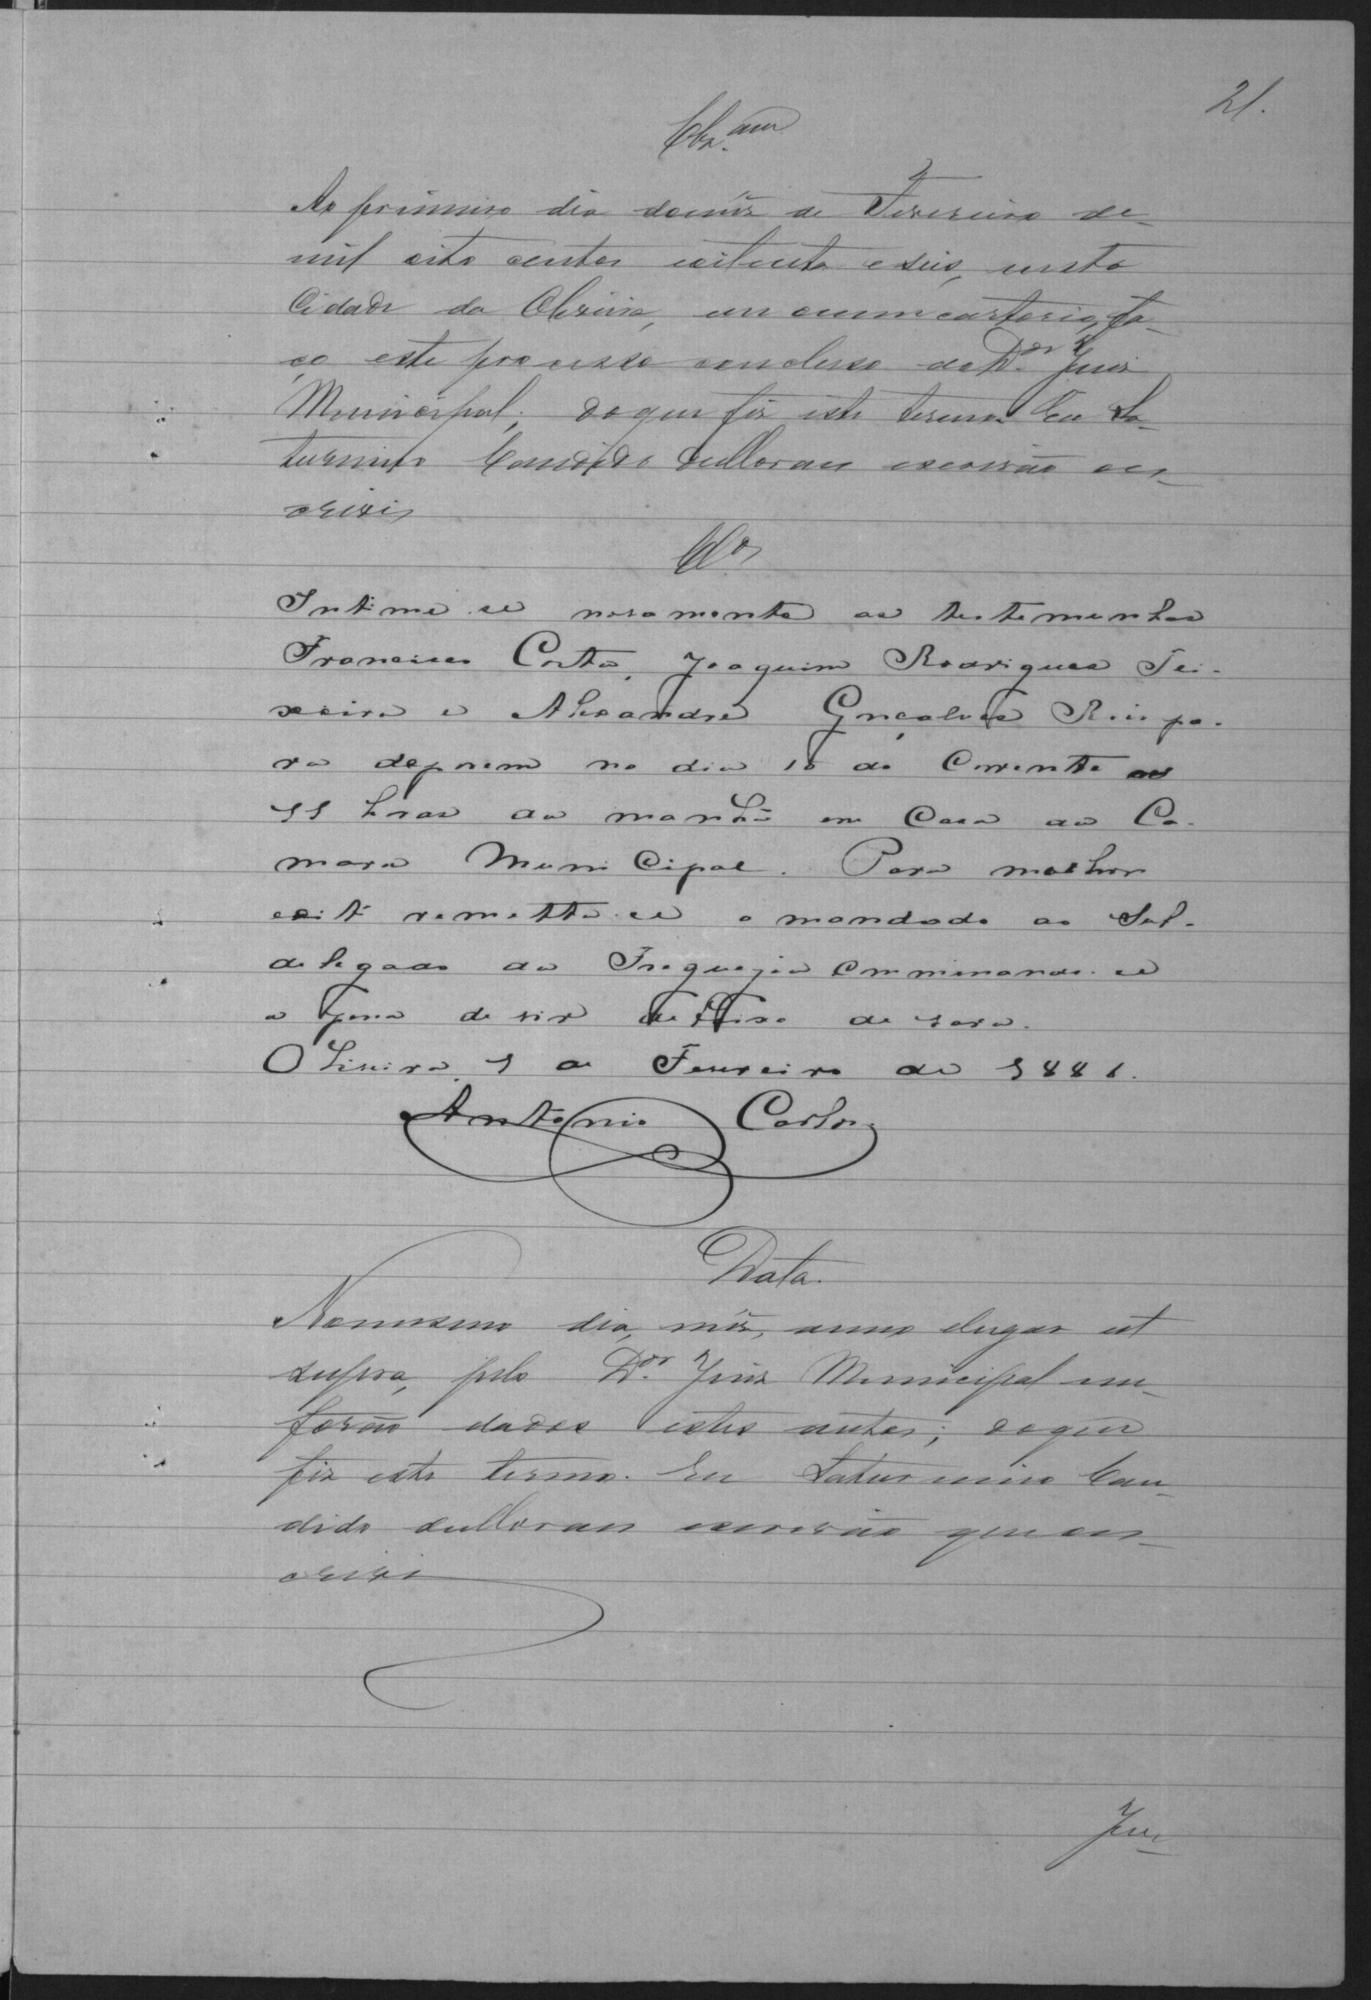 21.
Clz.am
Ao primeiro dia domês de Fevereiro de
mil oito centos eoitenta eseis, nesta
Cidade da Oliveira, em meu cartorio, fa-
ço este processo concluso ao D.or Juiz
Municipal; doque fiz este termo. Eu Sa-
turnino Candido escrivão es-
crevi
Clos
Intime-se novamente as testemunhas
Francisco Costa, Joaquim Rodrigues Tei-
xeira e Alexandre Gonçalves Reis pa-
ra deporem no dia 10 do Corrente as
11 horas da manhã em Casa da Ca-
mara Municipal. Para melhor
exito remetta-se o mandado ao Sub-
delegado da Freguezia comminando-se
a pena de vir de vara.
Oliveira, 1 de Fevereiro de 1886.
Antonio Carlos
Data.
Nomesmo dia, mês, anno elugar ut
supra, pelo D.or Juiz Municipal me
forão dados estes autos; doque
fiz este termo. Eu Saturnino Can-
dido escrivão que es-
crevi